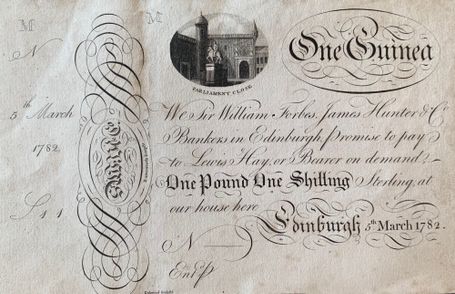 M
N
5th March
1782
£1 1
M
PARLIAMENT CLOSE
One Guinea
We Sir William Forbes, James Hunter & Co
Bankers in Edinburgh, Promise to pay
to Lewis Hay, or Bearer on demand
One Pound One Shilling Sterling, at
our house here
Edinburgh 5th March 1782.
N
Entd